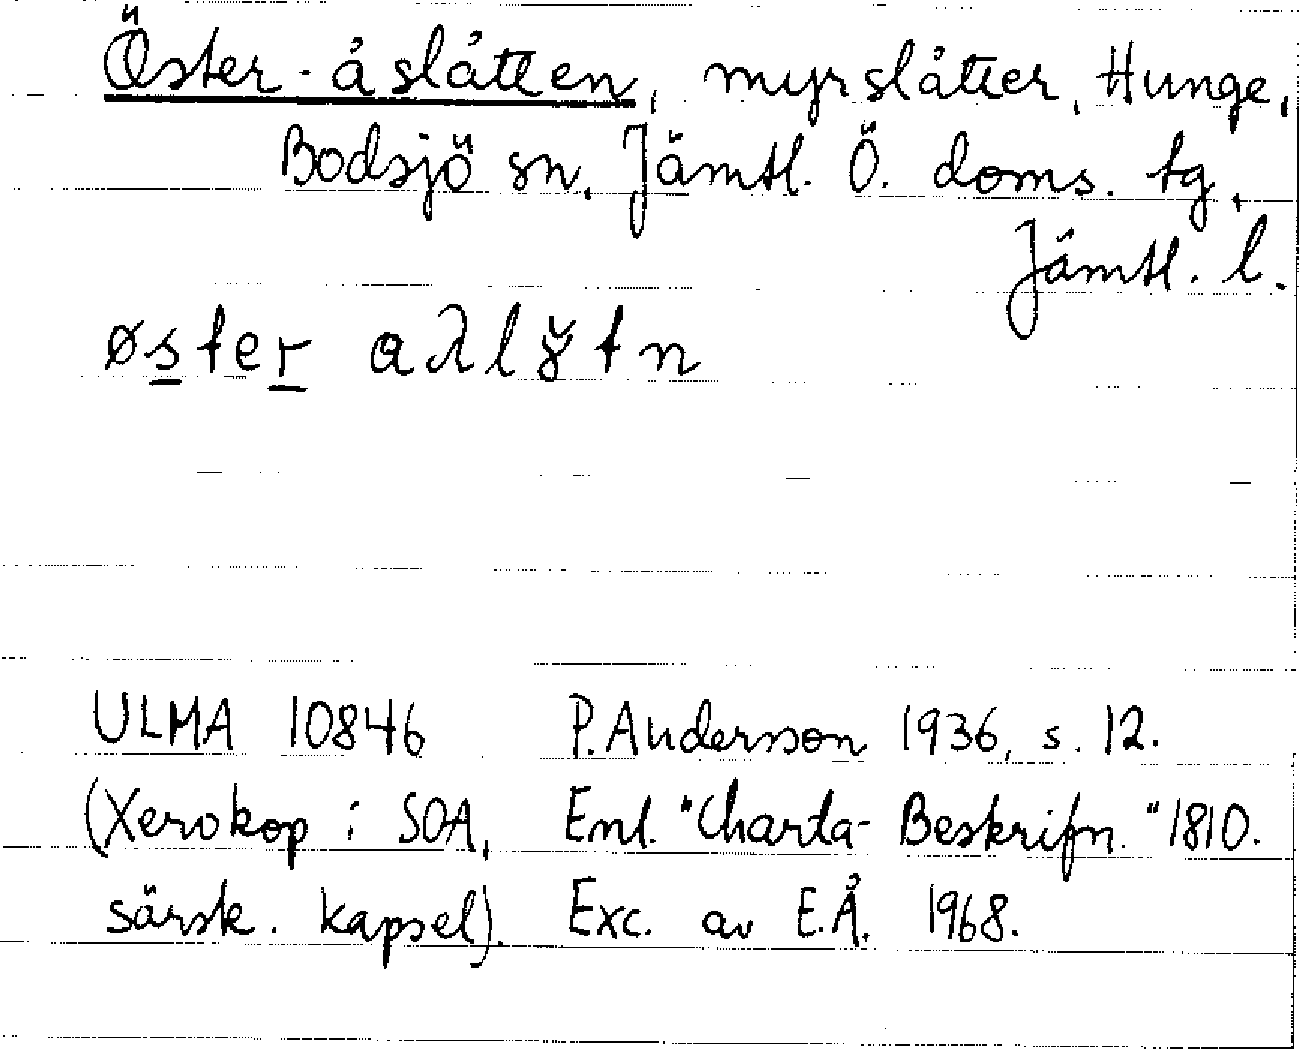 Öster-åslåtten, myrslåtter, Hunge,
Bodsjö sn, Jämtl. Ö. doms. tg,
Jämtl. l.
øster
ULMA 10846 P. Andersson 1936, s. 12.
(Xerokop i SOA, Enl. "Charta-Beskrifn." 1810.
särsk. kapsel). Exc. av E.Å. 1968.